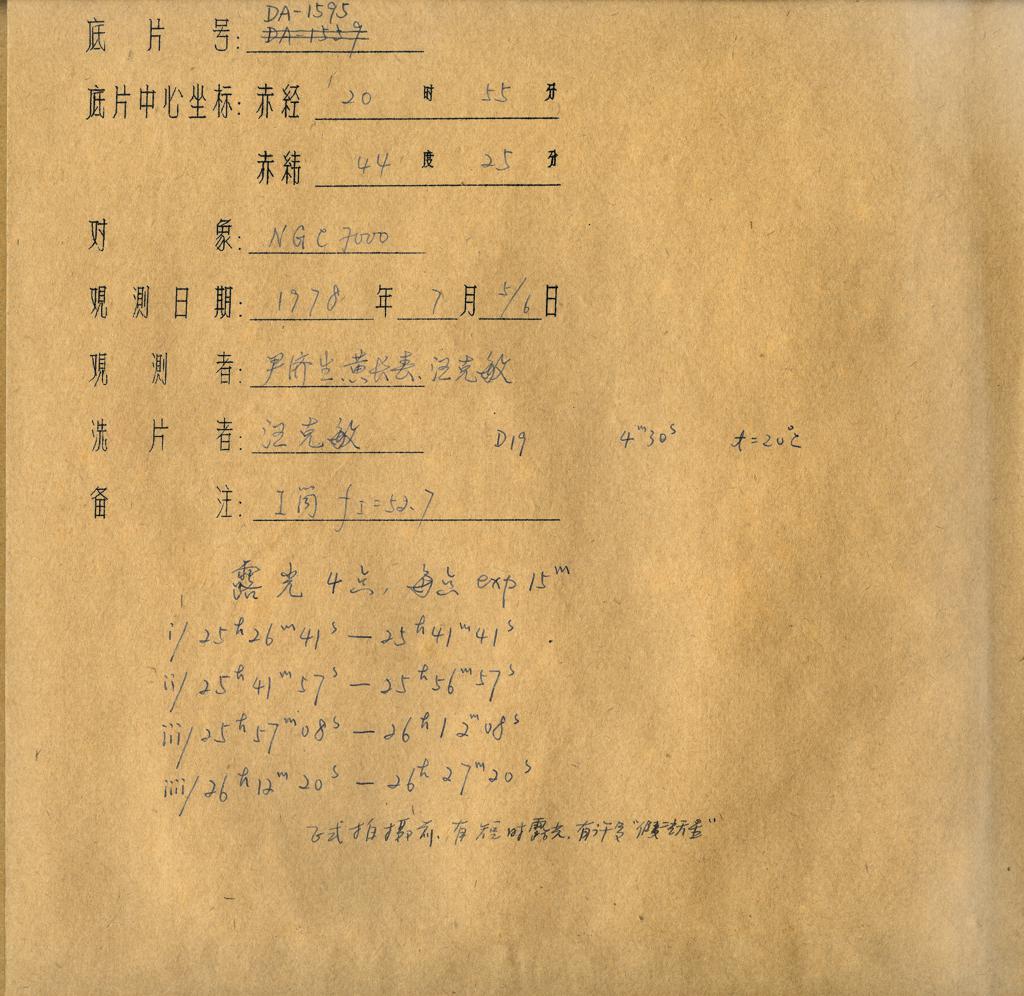 DA-1595
底片号: DA-1559
底片中心坐标: 赤经 20 时 55 分
赤纬 44 度 25 分
对象: NGC 7000
观测日期: 1978 年 7 月 5/6 日
观测者: 尹济生、黄长春、汪克敏
洗片者: 汪克敏 D19 4ᵐ30ˢ t=20℃
备注: I筒 f₅=52.7
露光 4 点, 每点 exp 15ᵐ
i/ 25ʰ26ᵐ41ˢ — 25ʰ41ᵐ41ˢ
ii/ 25ʰ41ᵐ57ˢ — 25ʰ56ᵐ57ˢ
iii/ 25ʰ57ᵐ08ˢ — 26ʰ12ᵐ08ˢ
iiii/ 26ʰ12ᵐ20ˢ — 26ʰ27ᵐ20ˢ
正式拍摄前, 有短时露光, 有许多